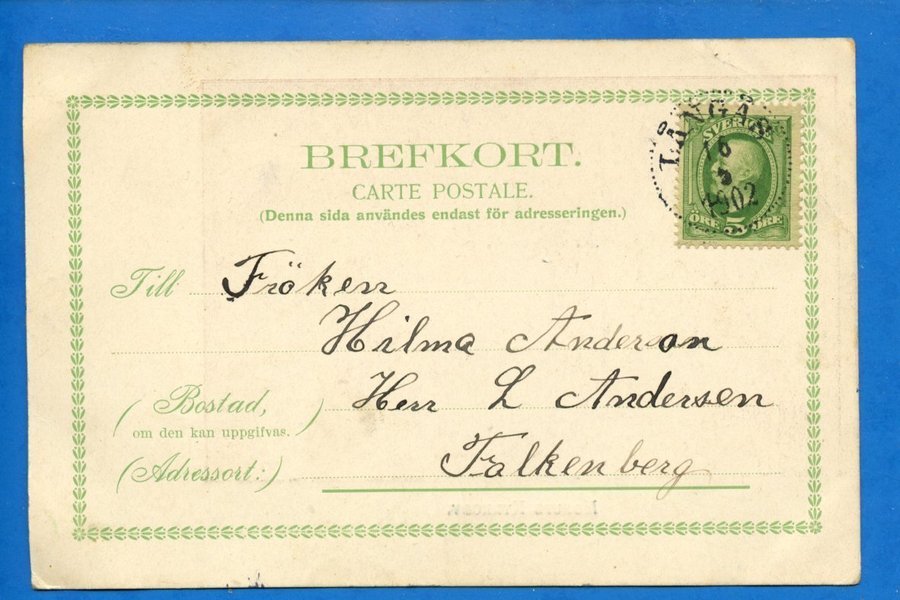 BREFKORT.
CARTE POSTALE.
(Denna sida användes endast för adresseringen.)
LÅNGÅS
1902
SVERIGE
ÖRE 5 ÖRE
Till Fröken
Hilma Anderson
(Bostad,
om den kan uppgifvas.)
Herr L Andersen
(Adressort:)
Falkenberg